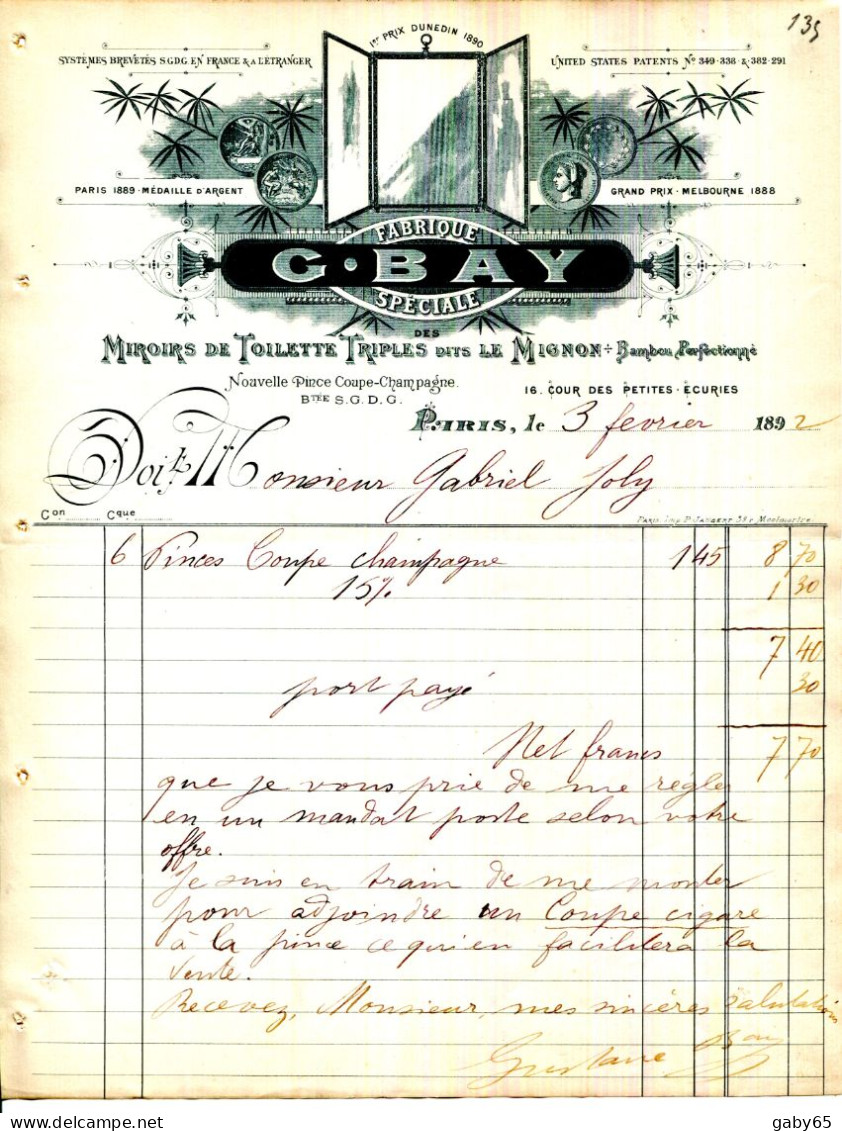 135
1er PRIX DUNEDIN 1890
SYSTÈMES BREVETÉS S.G.D.G EN FRANCE & A L'ÉTRANGER
UNITED STATES PATENTS Nº 349-338 & 382-291
PARIS 1889 - MÉDAILLE D'ARGENT
GRAND PRIX - MELBOURNE 1888
FABRIQUE
G. BAY
SPÉCIALE
DES
MIROIRS DE TOILETTE TRIPLES DITS LE MIGNON ÷ Bambou Perfectionné
Nouvelle Pince Coupe-Champagne.
BTÉE S.G.D.G.
16. COUR DES PETITES-ÉCURIES
PARIS, le 3 fevrier 1892
Doit M onsieur Gabriel Joly
Con Cque
6 Pinces Coupe champagne 1 45 8 70
15% 1 30
7 40
port payé 30
Net francs 7 70
que je vous prie de me régler
en un mandat poste selon votre
offre.
Je suis en train de me monter
pour adjoindre un Coupe cigare
à la pince ce qui en facilitera la
vente.
Recevez, Monsieur, mes sincères salutations
Gustave Bay
gaby65